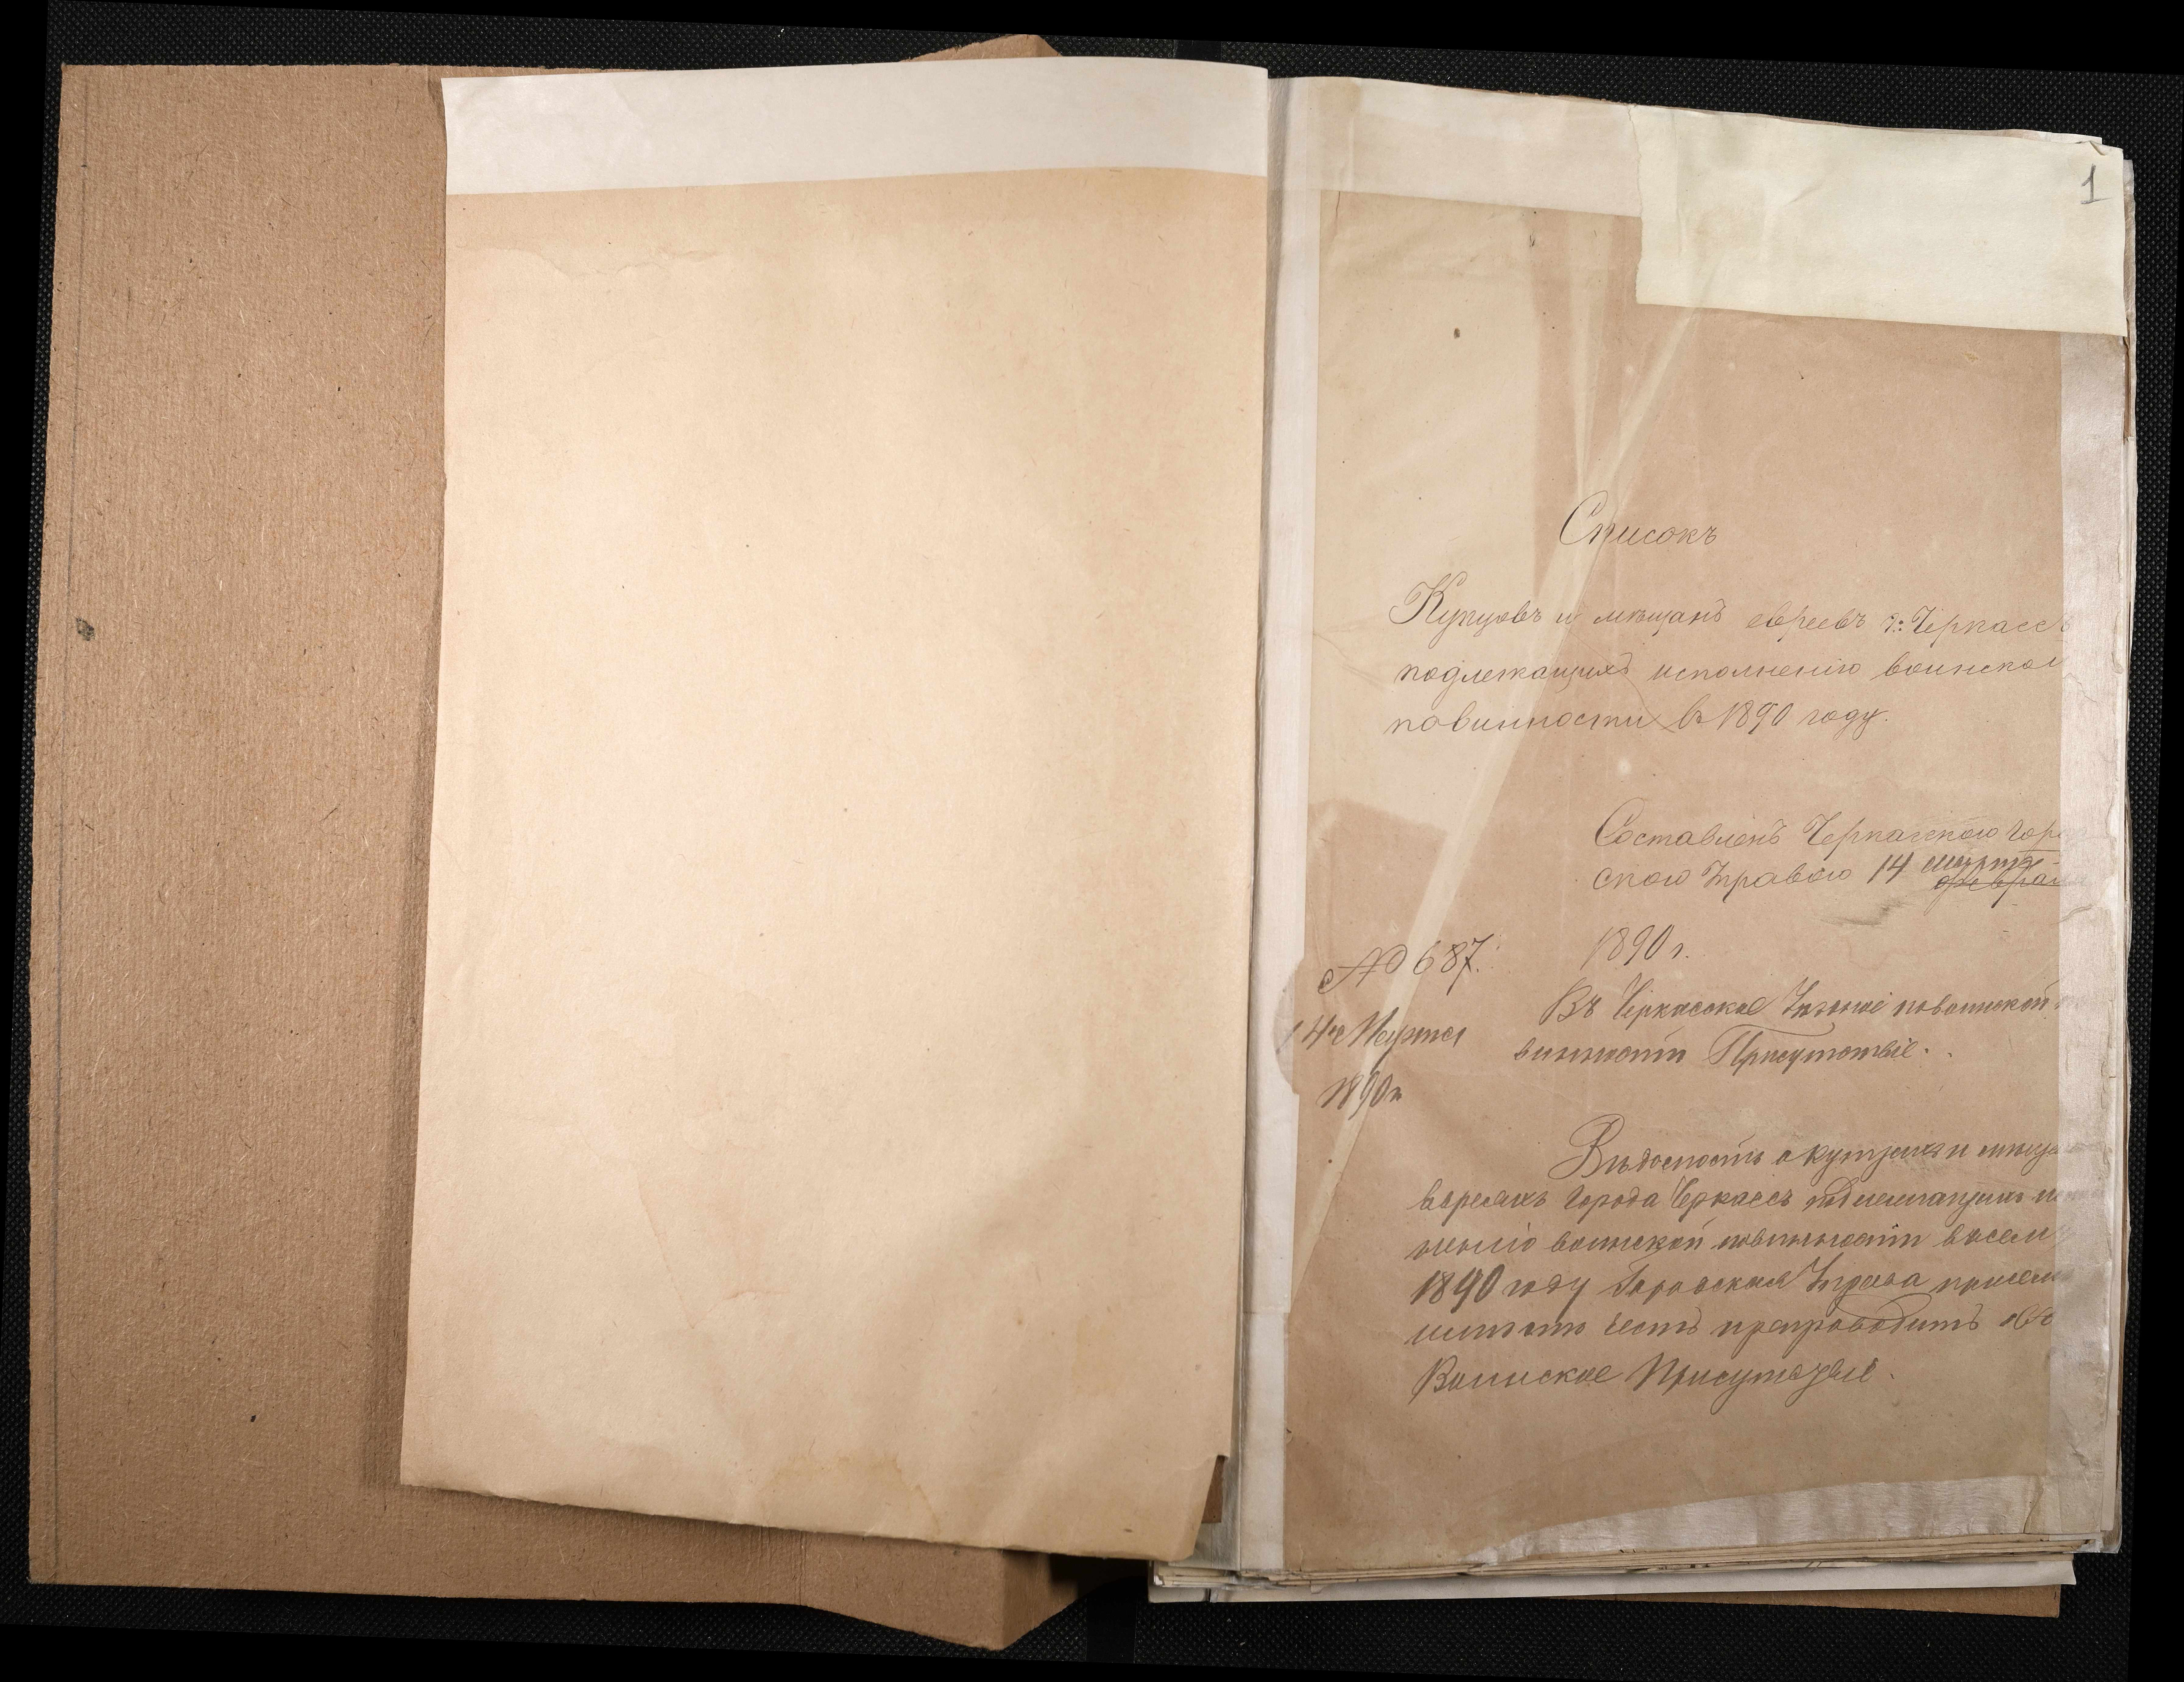 1
Списокъ
Купцовъ и мѣщанъ евреевъ г: Черкассъ
подлежащихъ исполненію воинской
повинности въ 1890 году.
Составленъ Черкасскою Гор
скою Управою 14 марта
февра
1890 г.
№ 687.
14го Марта
1890 г
Въ Черкасское Уѣздное по воинской
винности Присутствіе.
Вѣдомость о купцахъ и мѣща
евреяхъ города Черкассъ подлежащихъ и
ненію воинской повинности въ семъ
1890 году Городская Управа при семъ
имѣетъ честь препроводить въ
Воинское Присутствіе.